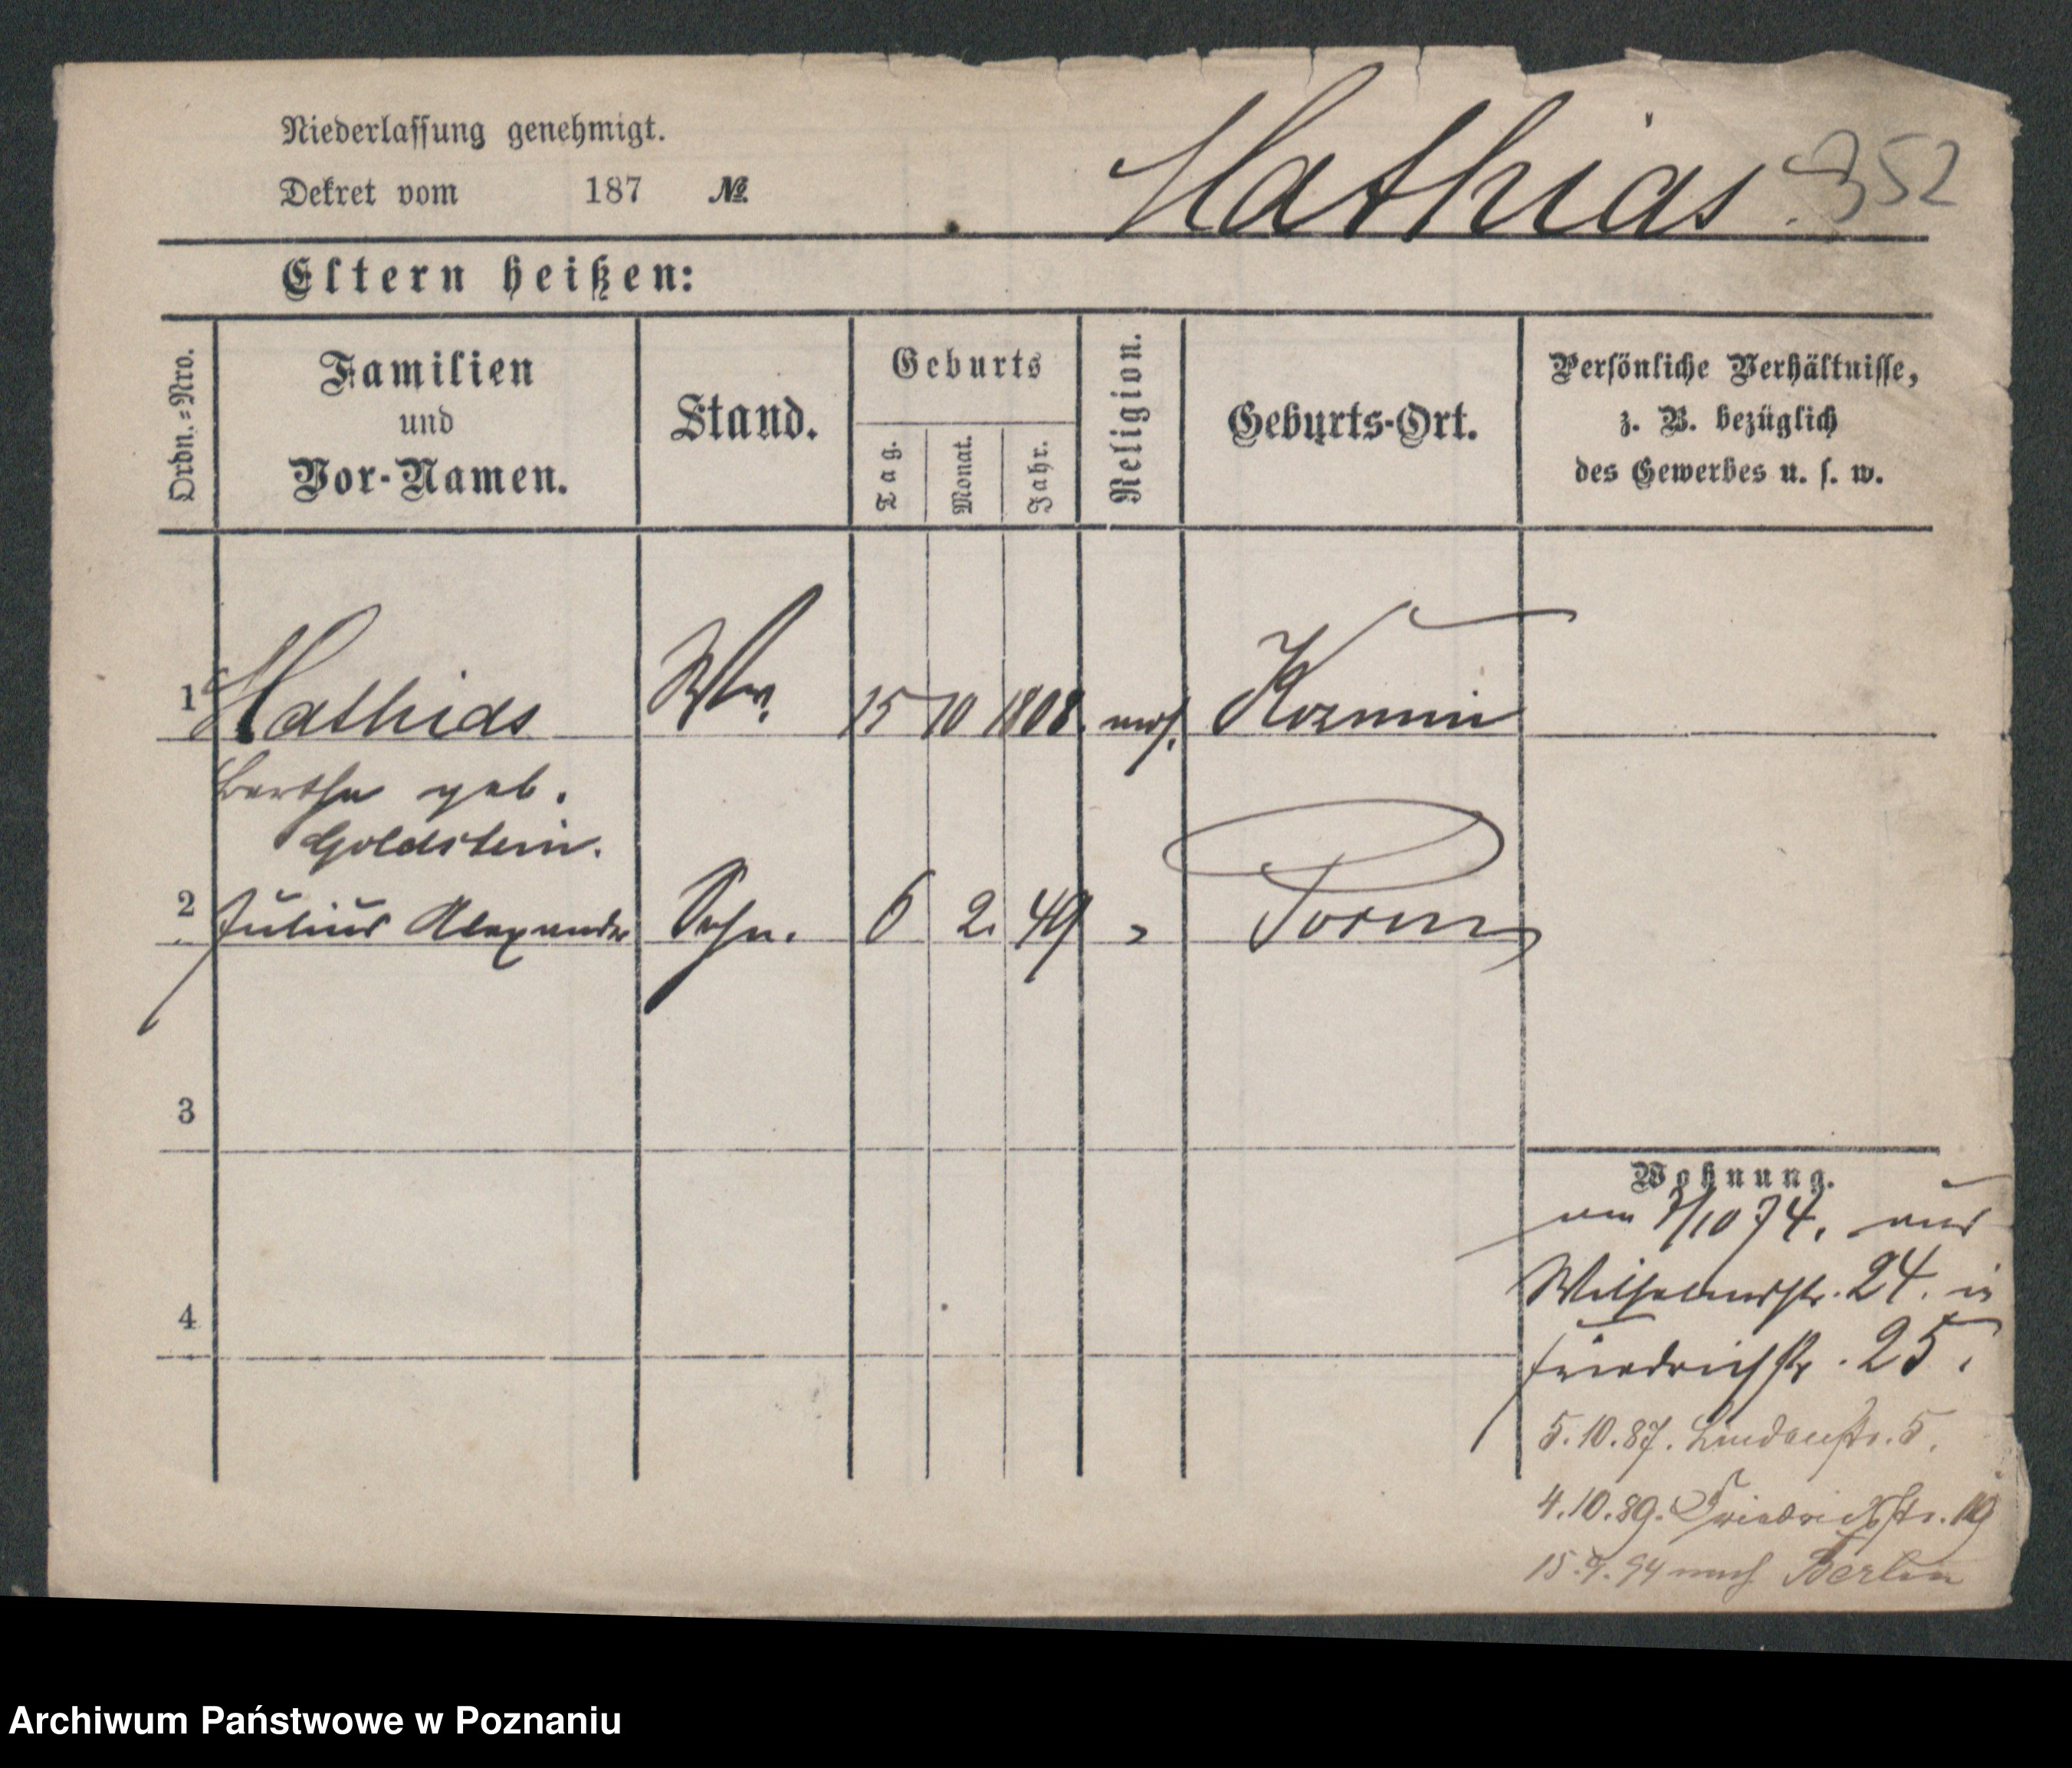 Niederlassung genehmigt.
Dekret vom 187 №
Mathias. 352
Eltern heißen:
Ordn.=Nro.
Familien
und
Vor-Namen.
Stand.
Geburts
Tag.
Monat.
Jahr.
Religion.
Geburts-Ort.
Persönliche Verhältnisse,
z. B. bezüglich
des Gewerbes u. s. w.
1 Mathias Ww. 15 10 1808. mos. Kozmin
Bertha geb.
Goldstein.
2 Julius Alexander Sohn. 6 2. 49 " Posen
3
4
Wohnung.
am /10 74. aus
Wilhelmstr. 24. in
Friedrichstr. 25.
5.10.87. Lindenstr. 5.
4.10.89. Friedrichstr. 19
15.9.94 nach Berlin
Archiwum Państwowe w Poznaniu